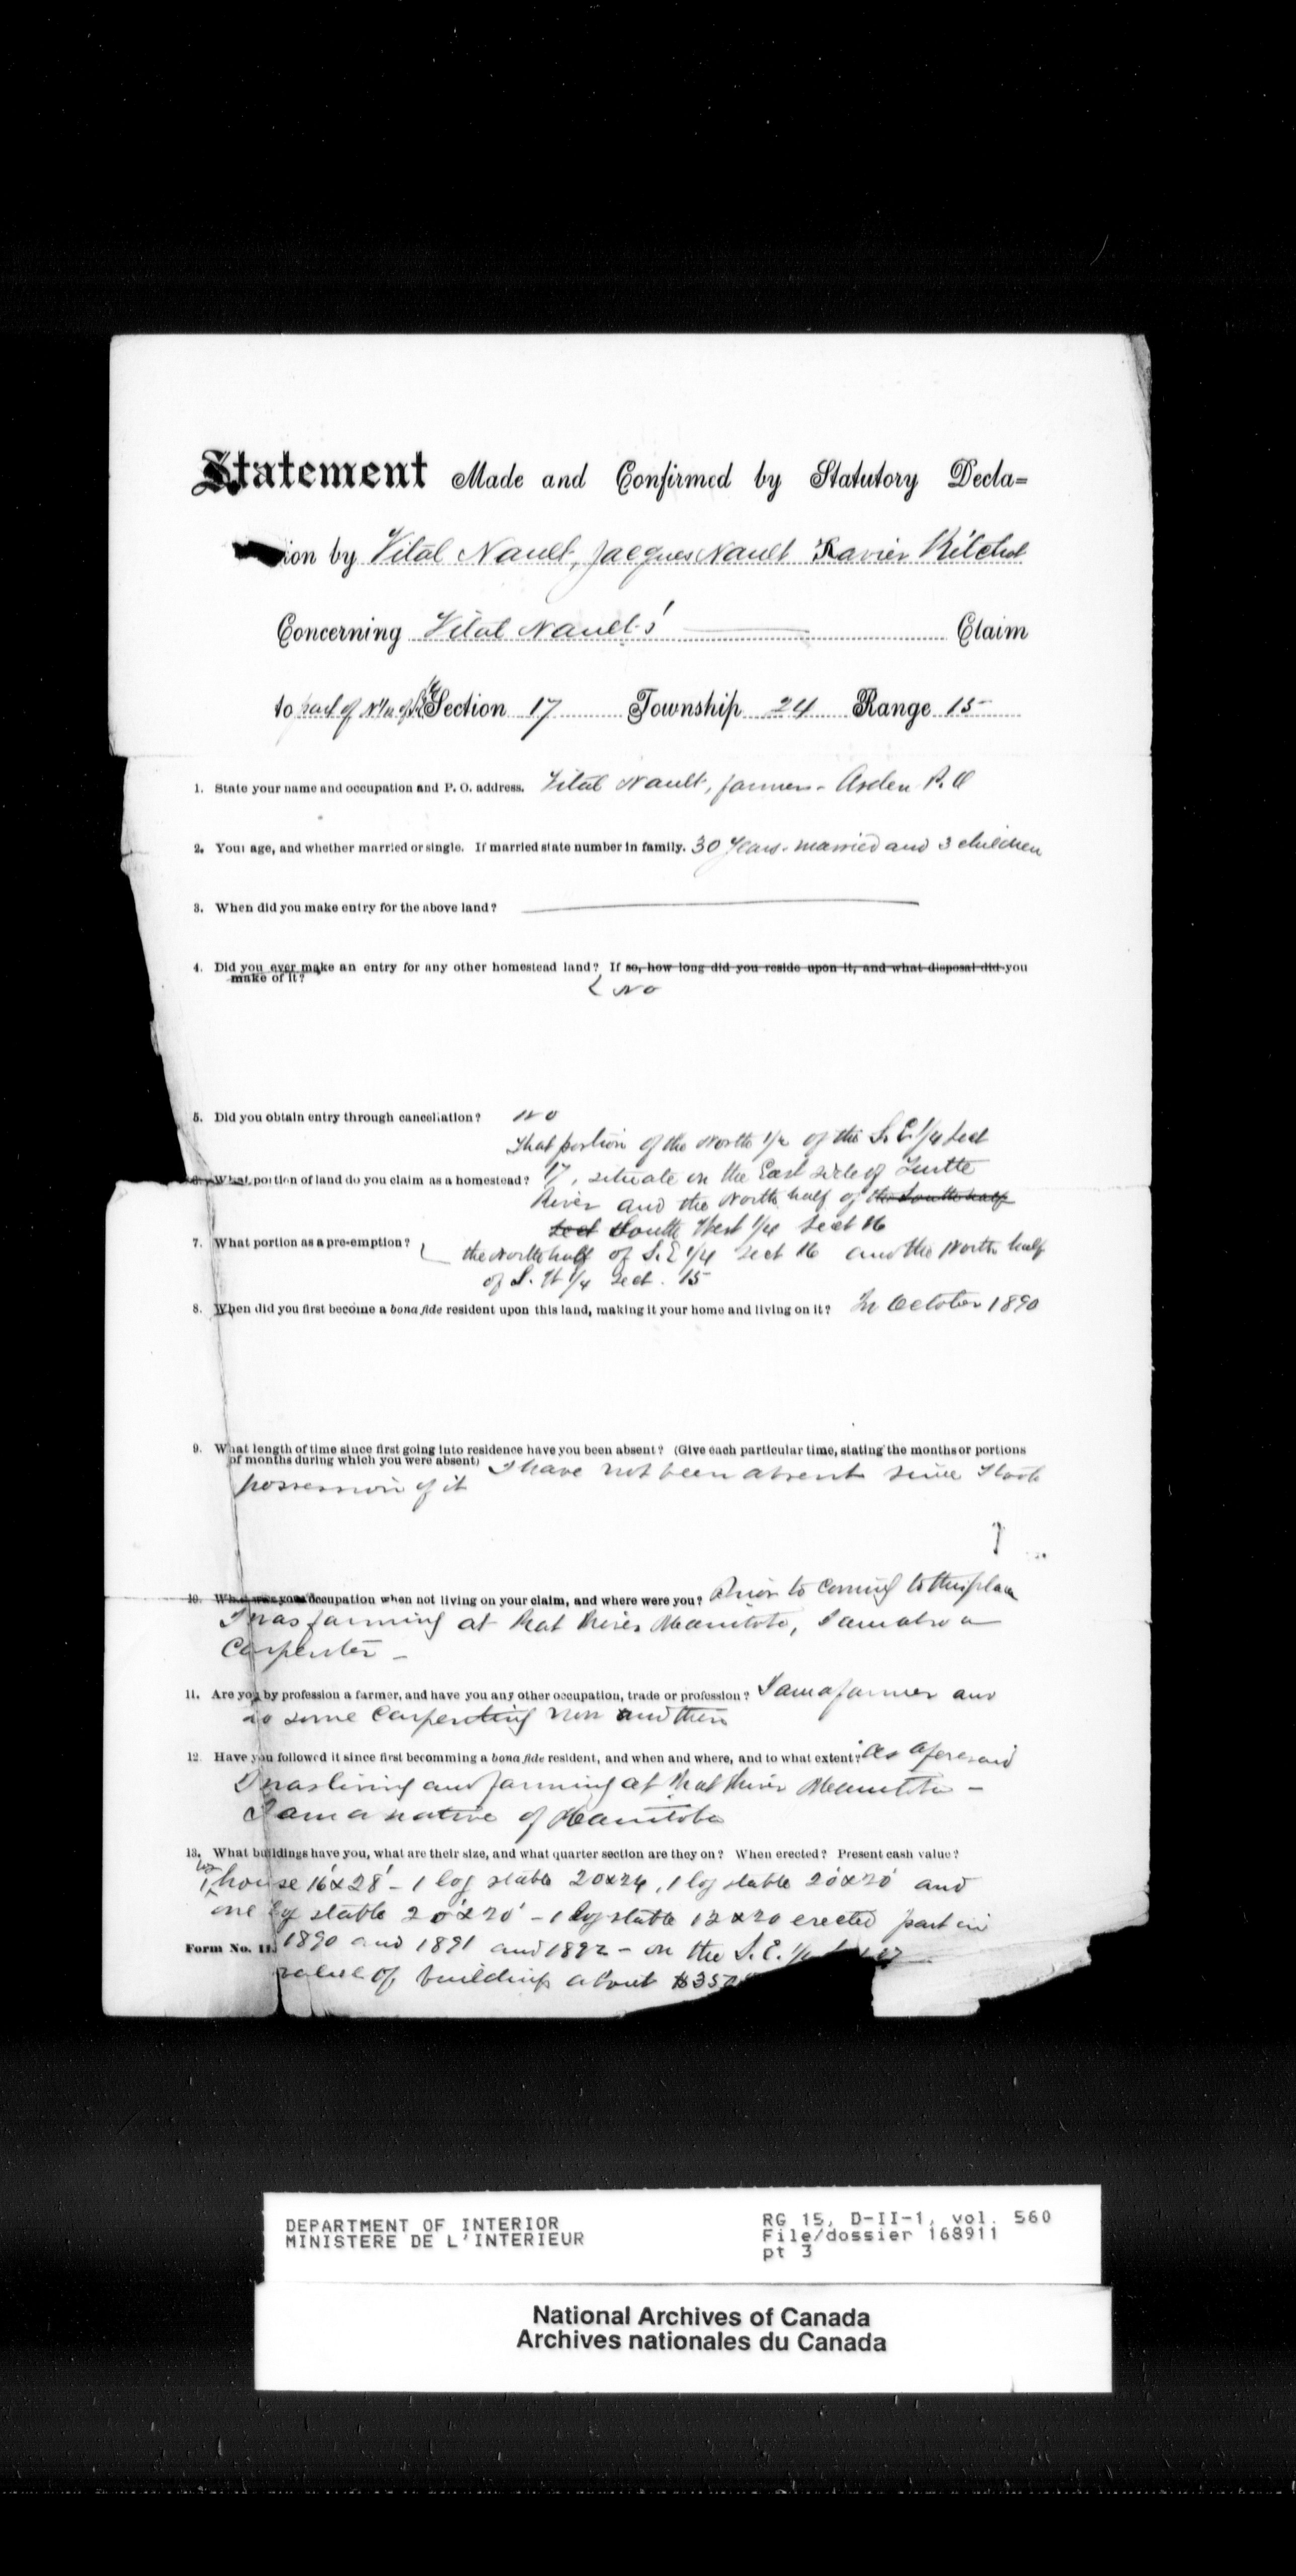 Statement Made and Confirmed by Statutory Decla=
ion by Vital Nault, Jacques Nault Xavier Ritchot
Concerning Vital Nault's Claim
to part of Section 17 Township 24 Range 15
1. State your name and occupation and P. O. address. Vital Nault, farmer - Arden P.O
2. Your age, and whether married or single. If married state number in family. 30 years - married and 3 children
3. When did you make entry for the above land?
4. Did you ever make an entry for any other homestead land? If so, how long did you reside upon it, and what disposal did you
make of it?
No
5. Did you obtain entry through cancellation? No
That portion of the North 1/2 of the S. E. 1/4 Sect
6. What portion of land do you claim as a homestead? 17, situate on the East side of Turtle
River and the North half of the South half
Sect South West 1/4 Sect 16
7. What portion as a pre-emption? the North half of S. E 1/4 Sect 16 and the North half
of S. W 1/4 Sect. 15
8. When did you first become a bona fide resident upon this land, making it your home and living on it? In October 1890
9. What length of time since first going into residence have you been absent? (Give each particular time, stating the months or portions
of months during which you were absent) I have not been absent since I took
possession of it
10. What was your occupation when not living on your claim, and where were you? Prior to coming to this place
I was farming at Rat River Manitoba, I am also a
Carpenter -
11. Are you by profession a farmer, and have you any other occupation, trade or profession? I am a farmer and
do some Carpenting now and then
12. Have you followed it since first becomming a bona fide resident, and when and where, and to what extent? As aforesaid
I was living and farming at Rat River Manitoba -
I am a native of Manitoba
13. What buildings have you, what are their size, and what quarter section are they on? When erected? Present cash value?
1 log house 16'x28' - 1 log stable 20x24, 1 log stable 20'x20' and
one log stable 20'x20' - 1 log stable 12x20 erected part in
Form No. 11. 1890 and 1891 and 1892 - on the S. E. 1/4 17
value of buildings about $350
DEPARTMENT OF INTERIOR
MINISTERE DE L'INTERIEUR
RG 15, D-II-1, vol. 560
File/dossier 168911
pt 3
National Archives of Canada
Archives nationales du Canada